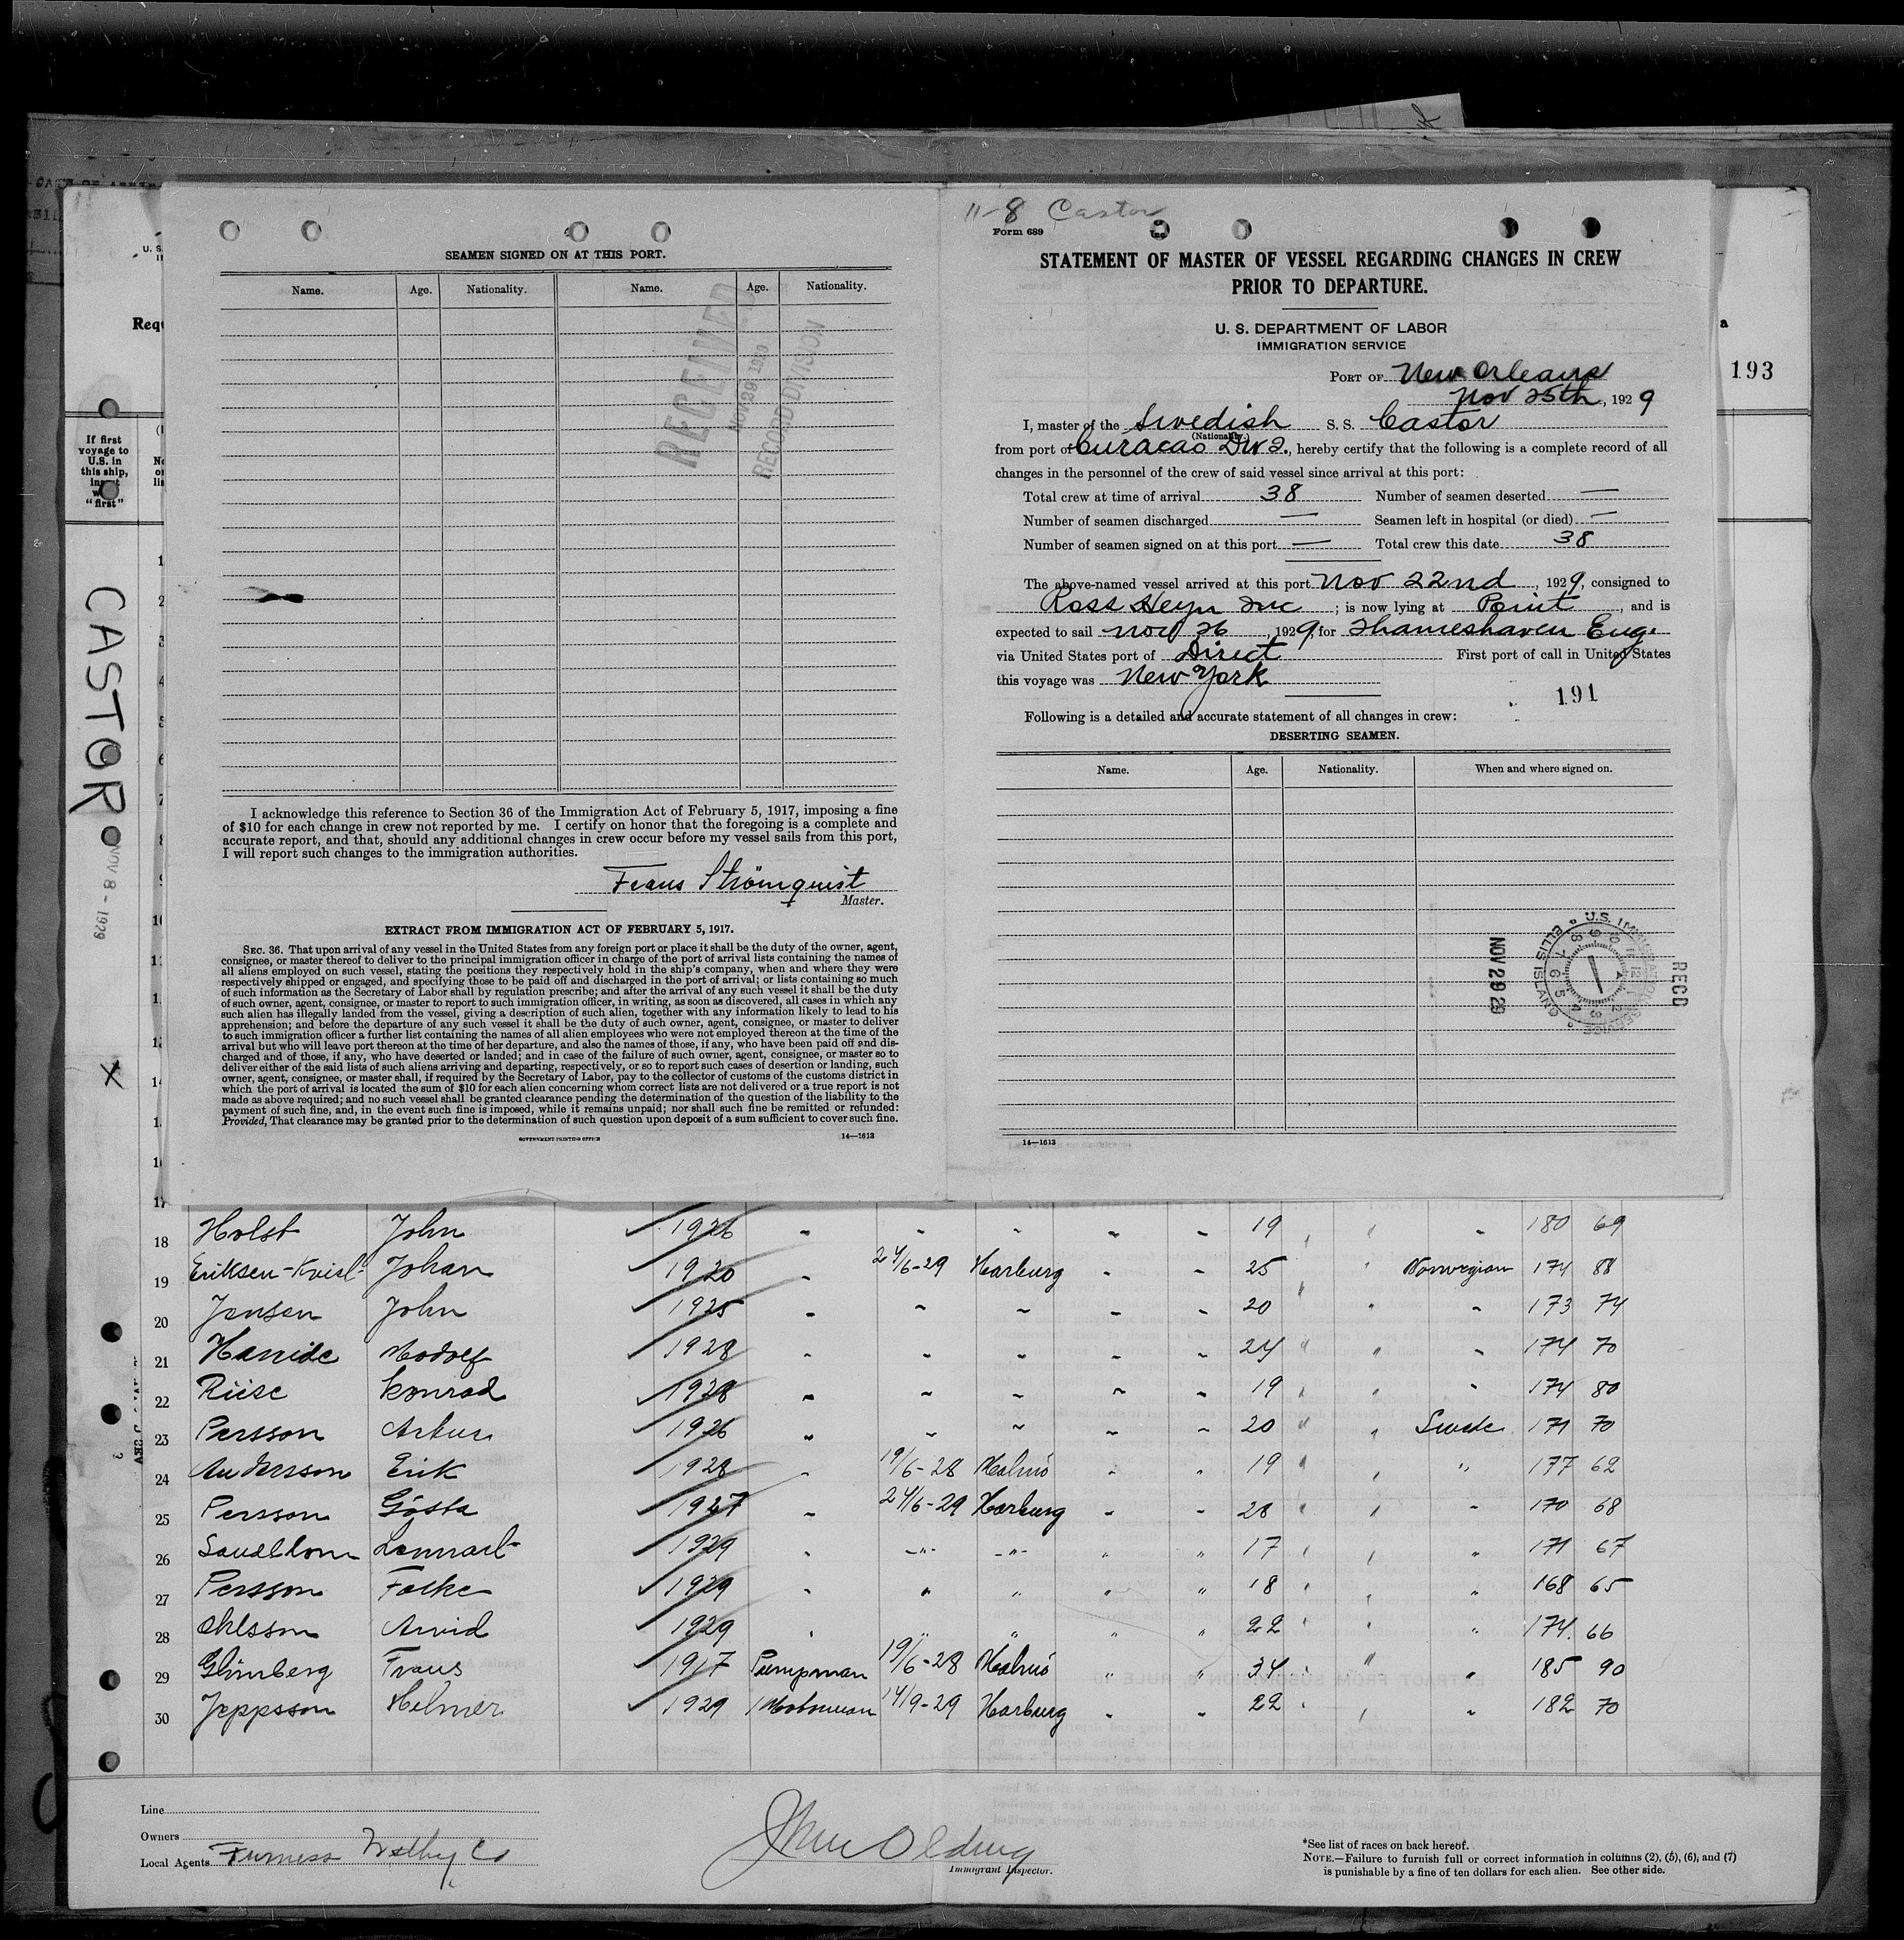 11-8 Castor
SEAMEN SIGNED ON AT THIS PORT.
Name. Age. Nationality. Name. Age. Nationality.
RECEIVED
NOV 29 1929
RECORD DIVISION
I acknowledge this reference to Section 36 of the Immigration Act of February 5, 1917, imposing a fine
of $10 for each change in crew not reported by me. I certify on honor that the foregoing is a complete and
accurate report, and that, should any additional changes in crew occur before my vessel sails from this port,
I will report such changes to the immigration authorities.
Frans Strömquist
Master.
EXTRACT FROM IMMIGRATION ACT OF FEBRUARY 5, 1917.
SEC. 36. That upon arrival of any vessel in the United States from any foreign port or place it shall be the duty of the owner, agent,
consignee, or master thereof to deliver to the principal immigration officer in charge of the port of arrival lists containing the names of
all aliens employed on such vessel, stating the positions they respectively hold in the ship's company, when and where they were
respectively shipped or engaged, and specifying those to be paid off and discharged in the port of arrival; or lists containing so much
of such information as the Secretary of Labor shall by regulation prescribe; and after the arrival of any such vessel it shall be the duty
of such owner, agent, consignee, or master to report to such immigration officer, in writing, as soon as discovered, all cases in which any
such alien has illegally landed from the vessel, giving a description of such alien, together with any information likely to lead to his
apprehension; and before the departure of any such vessel it shall be the duty of such owner, agent, consignee, or master to deliver
to such immigration officer a further list containing the names of all alien employees who were not employed thereon at the time of the
arrival but who will leave port thereon at the time of her departure, and also the names of those, if any, who have been paid off and dis-
charged and of those, if any, who have deserted or landed; and in case of the failure of such owner, agent, consignee, or master so to
deliver either of the said lists of such aliens arriving and departing, respectively, or so to report such cases of desertion or landing, such
owner, agent, consignee, or master shall, if required by the Secretary of Labor, pay to the collector of customs of the customs district in
which the port of arrival is located the sum of $10 for each alien concerning whom correct lists are not delivered or a true report is not
made as above required; and no such vessel shall be granted clearance pending the determination of the question of the liability to the
payment of such fine, and, in the event such fine is imposed, while it remains unpaid; nor shall such fine be remitted or refunded:
Provided, That clearance may be granted prior to the determination of such question upon deposit of a sum sufficient to cover such fine.
GOVERNMENT PRINTING OFFICE 14—1613
Form 689
STATEMENT OF MASTER OF VESSEL REGARDING CHANGES IN CREW
PRIOR TO DEPARTURE.
U. S. DEPARTMENT OF LABOR
IMMIGRATION SERVICE
PORT OF New Orleans
Nov 25th, 1929
I, master of the Swedish S. S. Castor
(Nationality.)
from port of Curacao DW2., hereby certify that the following is a complete record of all
changes in the personnel of the crew of said vessel since arrival at this port:
Total crew at time of arrival 38 Number of seamen deserted —
Number of seamen discharged — Seamen left in hospital (or died) —
Number of seamen signed on at this port — Total crew this date 38
The above-named vessel arrived at this port Nov 22nd, 1929, consigned to
Ross Heyn Inc; is now lying at Point, and is
expected to sail Nov 26, 1929, for Thameshaven Eng.
via United States port of Direct First port of call in United States
this voyage was New York
191
Following is a detailed and accurate statement of all changes in crew:
DESERTING SEAMEN.
Name. Age. Nationality. When and where signed on.
U.S. IMMIGRATION SERVICE ELLIS ISLAND
NOV 29 29
RECD
14—1613
193
Requ
If first
voyage to
U.S. in
this ship,
insert
"first"
CASTOR
NOV 8 - 1929
X
18 Holst John ✓ 1926 " " " " " 19 " " " 180 69
19 Eriksen-Kvisl- Johan 1920 " 24/6-29 Harburg " " 25 " " Norwegian 174 88
20 Jensen John 1925 " " " " " 20 " " " 173 74
21 Hamide Modolf 1928 " " " " " 24 " " " 174 70
22 Riise Konrad 1928 " " " " " 19 " " " 174 80
23 Persson Artur 1926 " " " " " 20 " " Swede 171 70
24 Andersson Erik 1928 " 19/6-28 Malmö " " 19 " " " 177 62
25 Persson Gösta 1927 " 24/6-29 Harburg " " 28 " " " 170 68
26 Sandblom Lennart 1929 " -"- -"- " " 17 " " " 171 67
27 Persson Folke 1929 " " " " " 18 " " " 168 65
28 Ohlsson Arvid 1929 " " " " " 22 " " " 174. 66
29 Glimberg Frans 1917 Pumpman 19/6-28 Malmö " " 34 " " " 185 90
30 Jeppsson Helmer ✓ 1929 Motorman 14/9-29 Harburg " " 22 " " " 182 70
Line
Owners
Local Agents Furness Withy Co
Immigrant Inspector.
*See list of races on back hereof.
NOTE.—Failure to furnish full or correct information in columns (2), (5), (6), and (7)
is punishable by a fine of ten dollars for each alien. See other side.